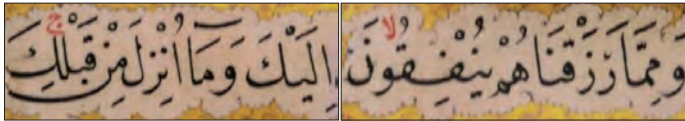 وَمِمَّا رَزَقْنَاهُمْ يُنْفِقُونَ لا
اِلَيْكَ وَمَآ اُنْزِلَ مِنْ قَبْلِكَ ج